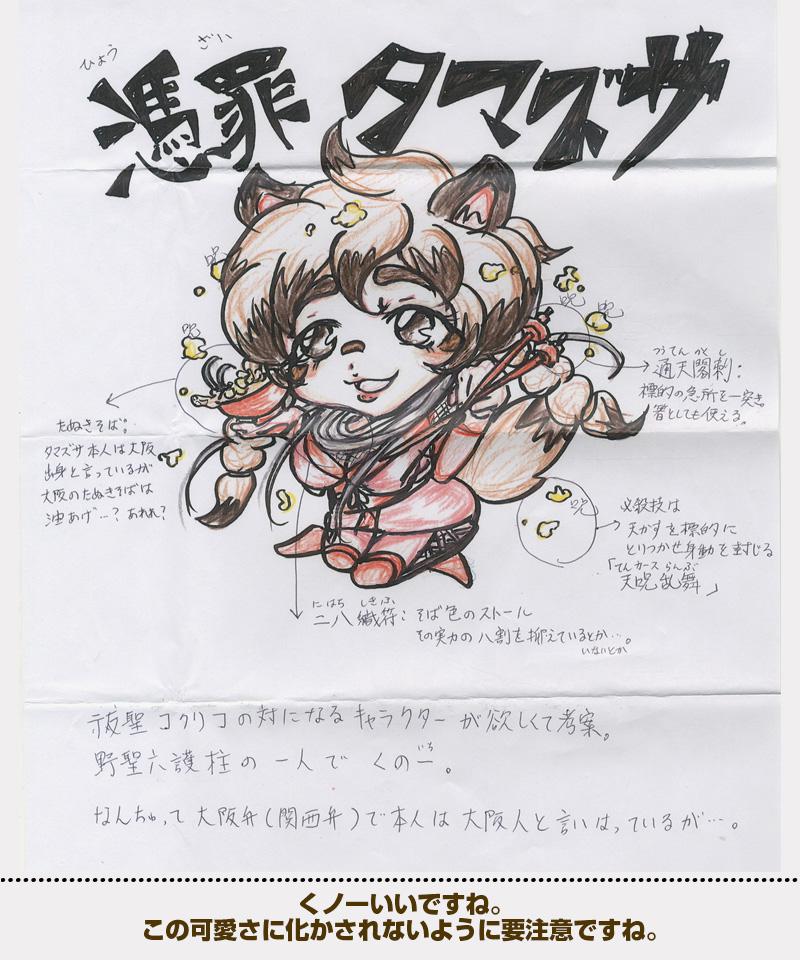 ひょう ざい
憑罪 タマズサ
呪
呪
呪
呪
つうてんかくし
通天閣刺:
標的の急所を一突き
箸としても使える。
たぬきそば:
タマズサ本人は大阪
出身と言っているが
大阪のたぬきそばは
油あげ…?あれれ?
呪
必殺技は
天かすを標的に
とりつかせ身動を封じる
てんカースらんぶ
「天呪乱舞」
にはち しきふ
二八織符: そば色のストール
その実力の八割を抑えているとか…。
いないとか
祓聖コクリコの対になるキャラクターが欲しくて考案。
野聖六護柱の一人でくの一。
いち
なんちゃって大阪弁(関西弁)で本人は大阪人と言いはっているが…。
くノ一いいですね。
この可愛さに化かされないように要注意ですね。